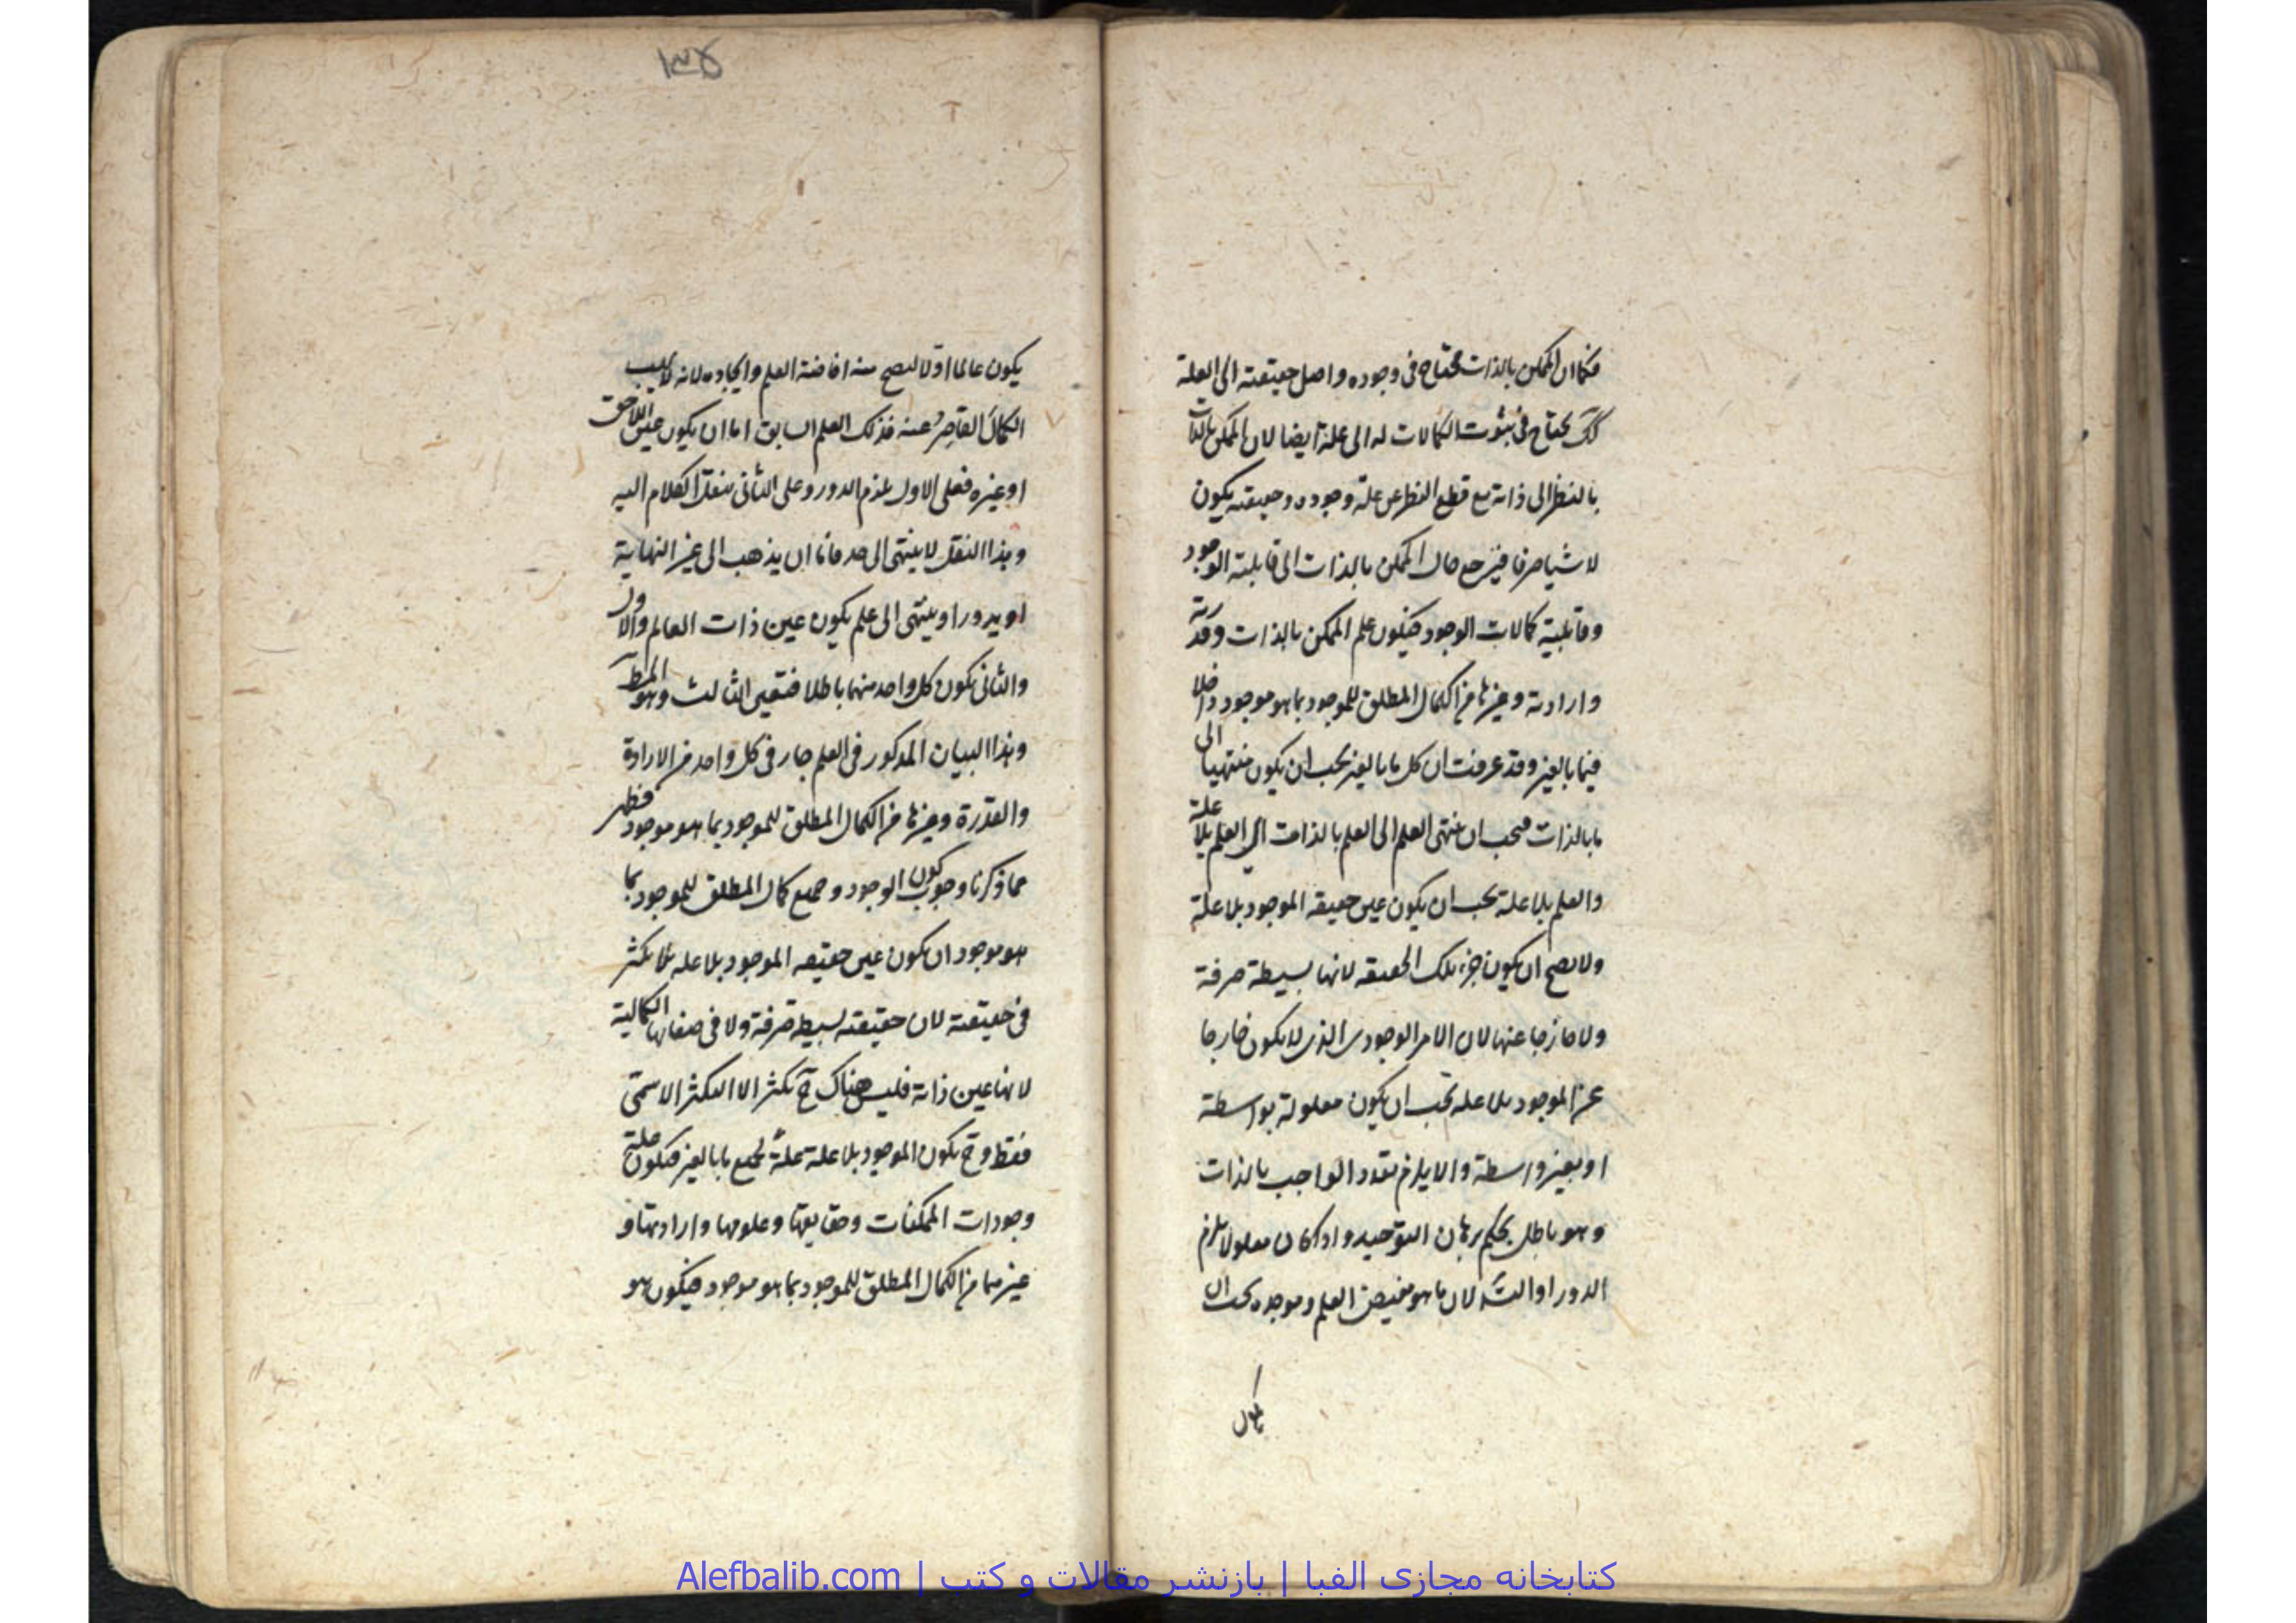 فكما ان الممكن بالذات محتاج فى وجوده واصل حقيقته الى العلة
كك يحتاج فى ثبوت الكمالات له الى علة ايضا لان الممكن بالذات
بالنظر الى ذاته مع قطع النظر عن علة وجوده وحقيقته يكون
لا شيا صرفا فيرجع حال الممكن بالذات الى قابلية الوجود
وقابلية كمالات الوجود فيكون علم الممكن بالذات وقدرته
وارادته وغيرها من الكمال المطلق للموجود بما هو موجود داخلا
فيما بالغير وقد عرفت ان كل ما بالغير يجب ان يكون منتهيا الى
ما بالذات فيجب ان ينتهى العلم الى العلم بالذات اى العلم بلا علة
والعلم بلا علة يجب ان يكون عين حقيقه الموجود بلا علة
ولا يصح ان يكون جزء تلك الحقيقه لانها بسيطة صرفة
ولا خارجا عنها لان الامر الوجودى الذى لا يكون خارجا
عن الموجود بلا عله يجب ان يكون معلولة بواسطة
او بغير واسطة والا يلزم تعدد الواجب بالذات
وهو باطل بحكم برهان التوحيد واذا كان معلولا يلزم
الدور او التسـ لان ما هو مفيض العلم وموجده يجب ان
يكون
١٣٥
يكون عالما اولا ليصح منه افاضة العلم وايجاده لانه لا يهب
الكمالَ القاصِرُ عنه فذلك العلم السابق اما ان يكون عين اللاحق
او غيره فعلى الاول يلزم الدور وعلى الثانى ننقل الكلام اليه
وهذا النقل لا ينتهى الى حد فاما ان يذهب الى غير النهاية
او يدور او ينتهى الى علم يكون عين ذات العالم والاول
والثانى يكون كل واحد منهما باطلا فتعين الثالث وهو المط
وهذا البيان المذكور فى العلم جار فى كل واحد من الارادة
والقدرة وغيرها من الكمال المطلق للموجود بما هو موجود فظهر
مما ذكرنا وجوب كون الوجود وجميع كمال المطلق للموجود بما
هو موجود ان يكون عين حقيقه الموجود بلا عله فلا تكثر
فى حقيقته لان حقيقته بسيطه صرفة ولا فى صفاتها الكمالية
لانها عين ذاته فليس هناك ح تكثر الا التكثر الاسمى
فقط وح يكون الموجود بلا علة علةً لجميع ما بالغير فيكون علة
وجودات الممكنات وحقايقها وعلومها وارادتها و
غيرهما من الكمال المطلق للموجود بما هو موجود فيكون هو
کتابخانه مجازی الفبا | بازنشر مقالات و کتب | Alefbalib.com